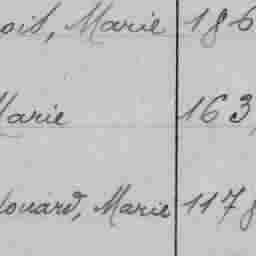 oit, Marie 186
Marie 163
douard, Marie 1178